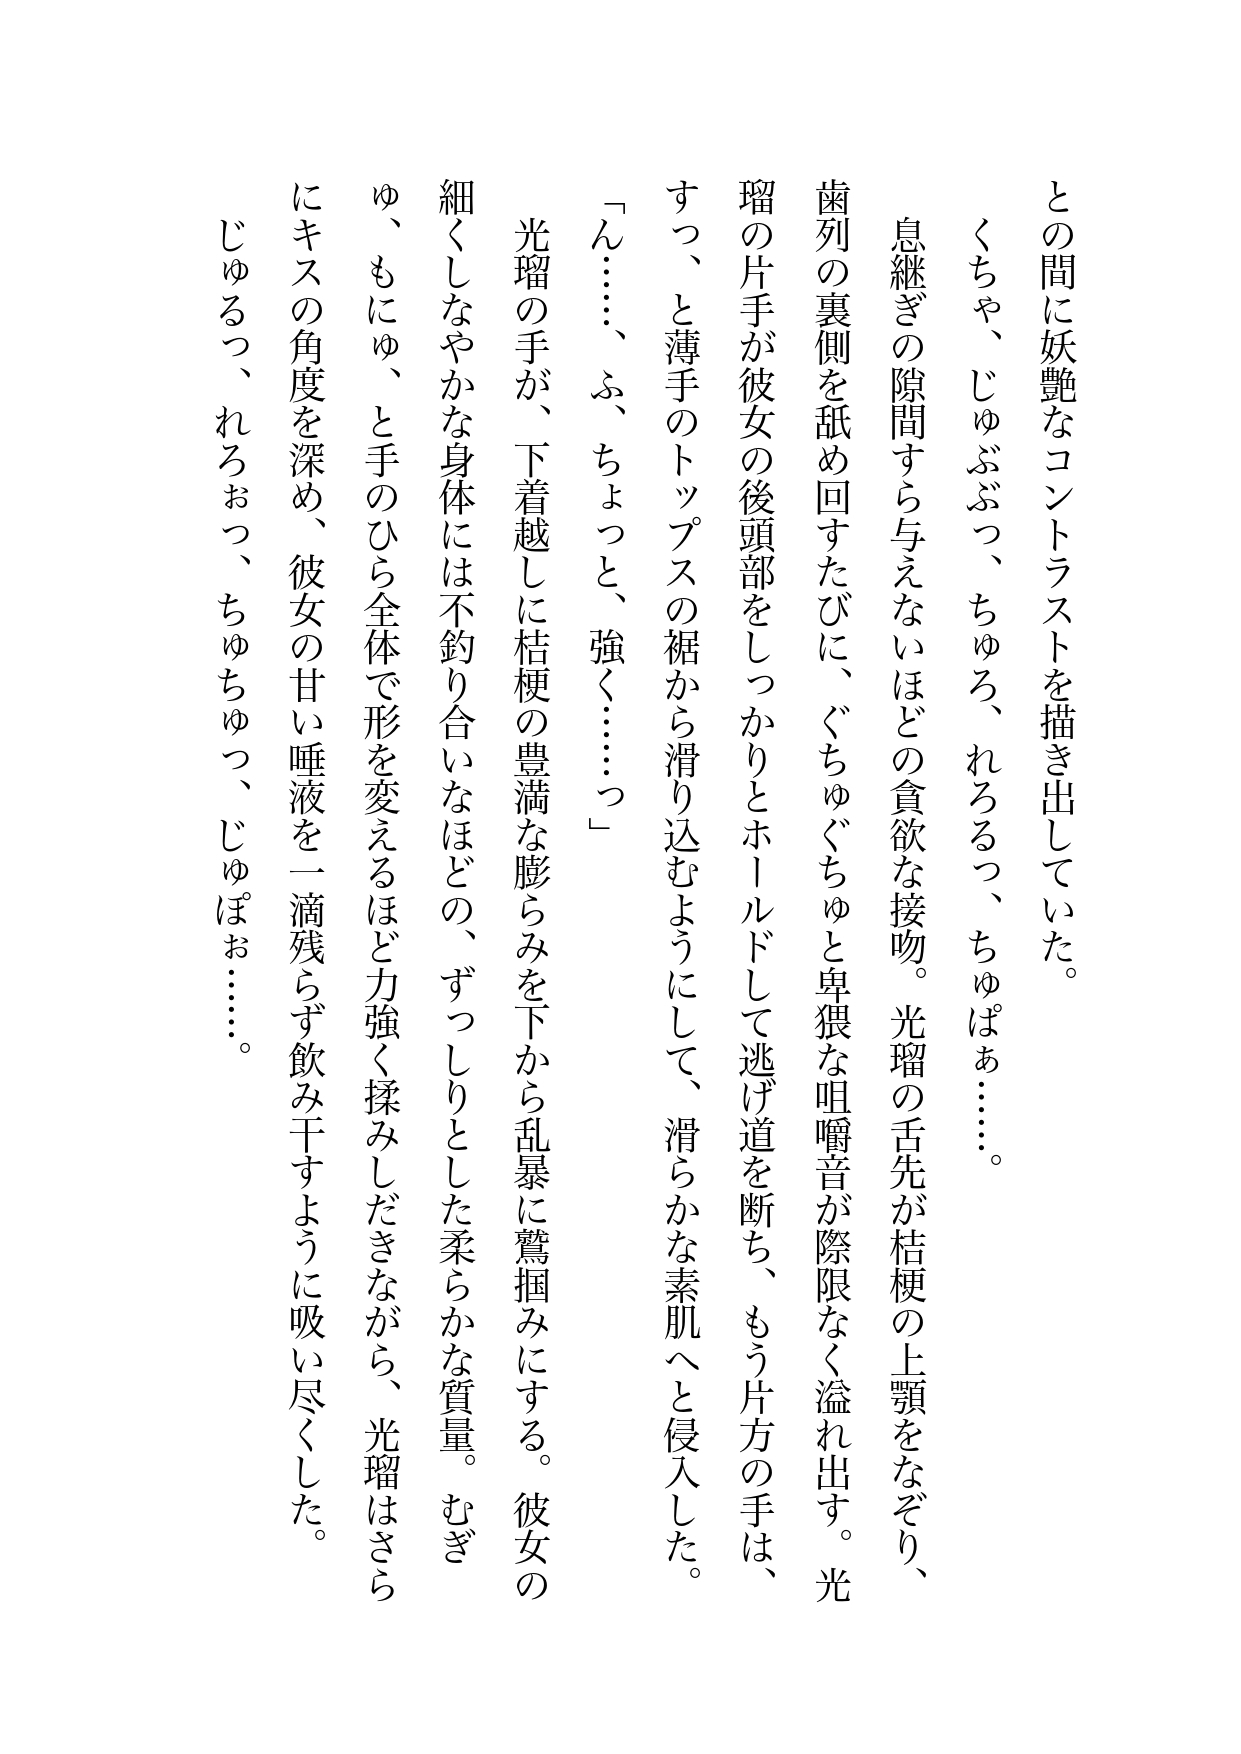 との間に妖艶なコントラストを描き出していた。
くちゃ、じゅぶぶっ、ちゅろ、れろるっ、ちゅぱぁ……。
息継ぎの隙間すら与えないほどの貪欲な接吻。光瑠の舌先が桔梗の上顎をなぞり、
歯列の裏側を舐め回すたびに、ぐちゅぐちゅと卑猥な咀嚼音が際限なく溢れ出す。光
瑠の片手が彼女の後頭部をしっかりとホールドして逃げ道を断ち、もう片方の手は、
すっ、と薄手のトップスの裾から滑り込むようにして、滑らかな素肌へと侵入した。
「ん……、ふ、ちょっと、強く……っ」
光瑠の手が、下着越しに桔梗の豊満な膨らみを下から乱暴に鷲掴みにする。彼女の
細くしなやかな身体には不釣り合いなほどの、ずっしりとした柔らかな質量。むぎ
ゅ、もにゅ、と手のひら全体で形を変えるほど力強く揉みしだきながら、光瑠はさら
にキスの角度を深め、彼女の甘い唾液を一滴残らず飲み干すように吸い尽くした。
じゅるっ、れろぉっ、ちゅちゅっ、じゅぽぉ……。